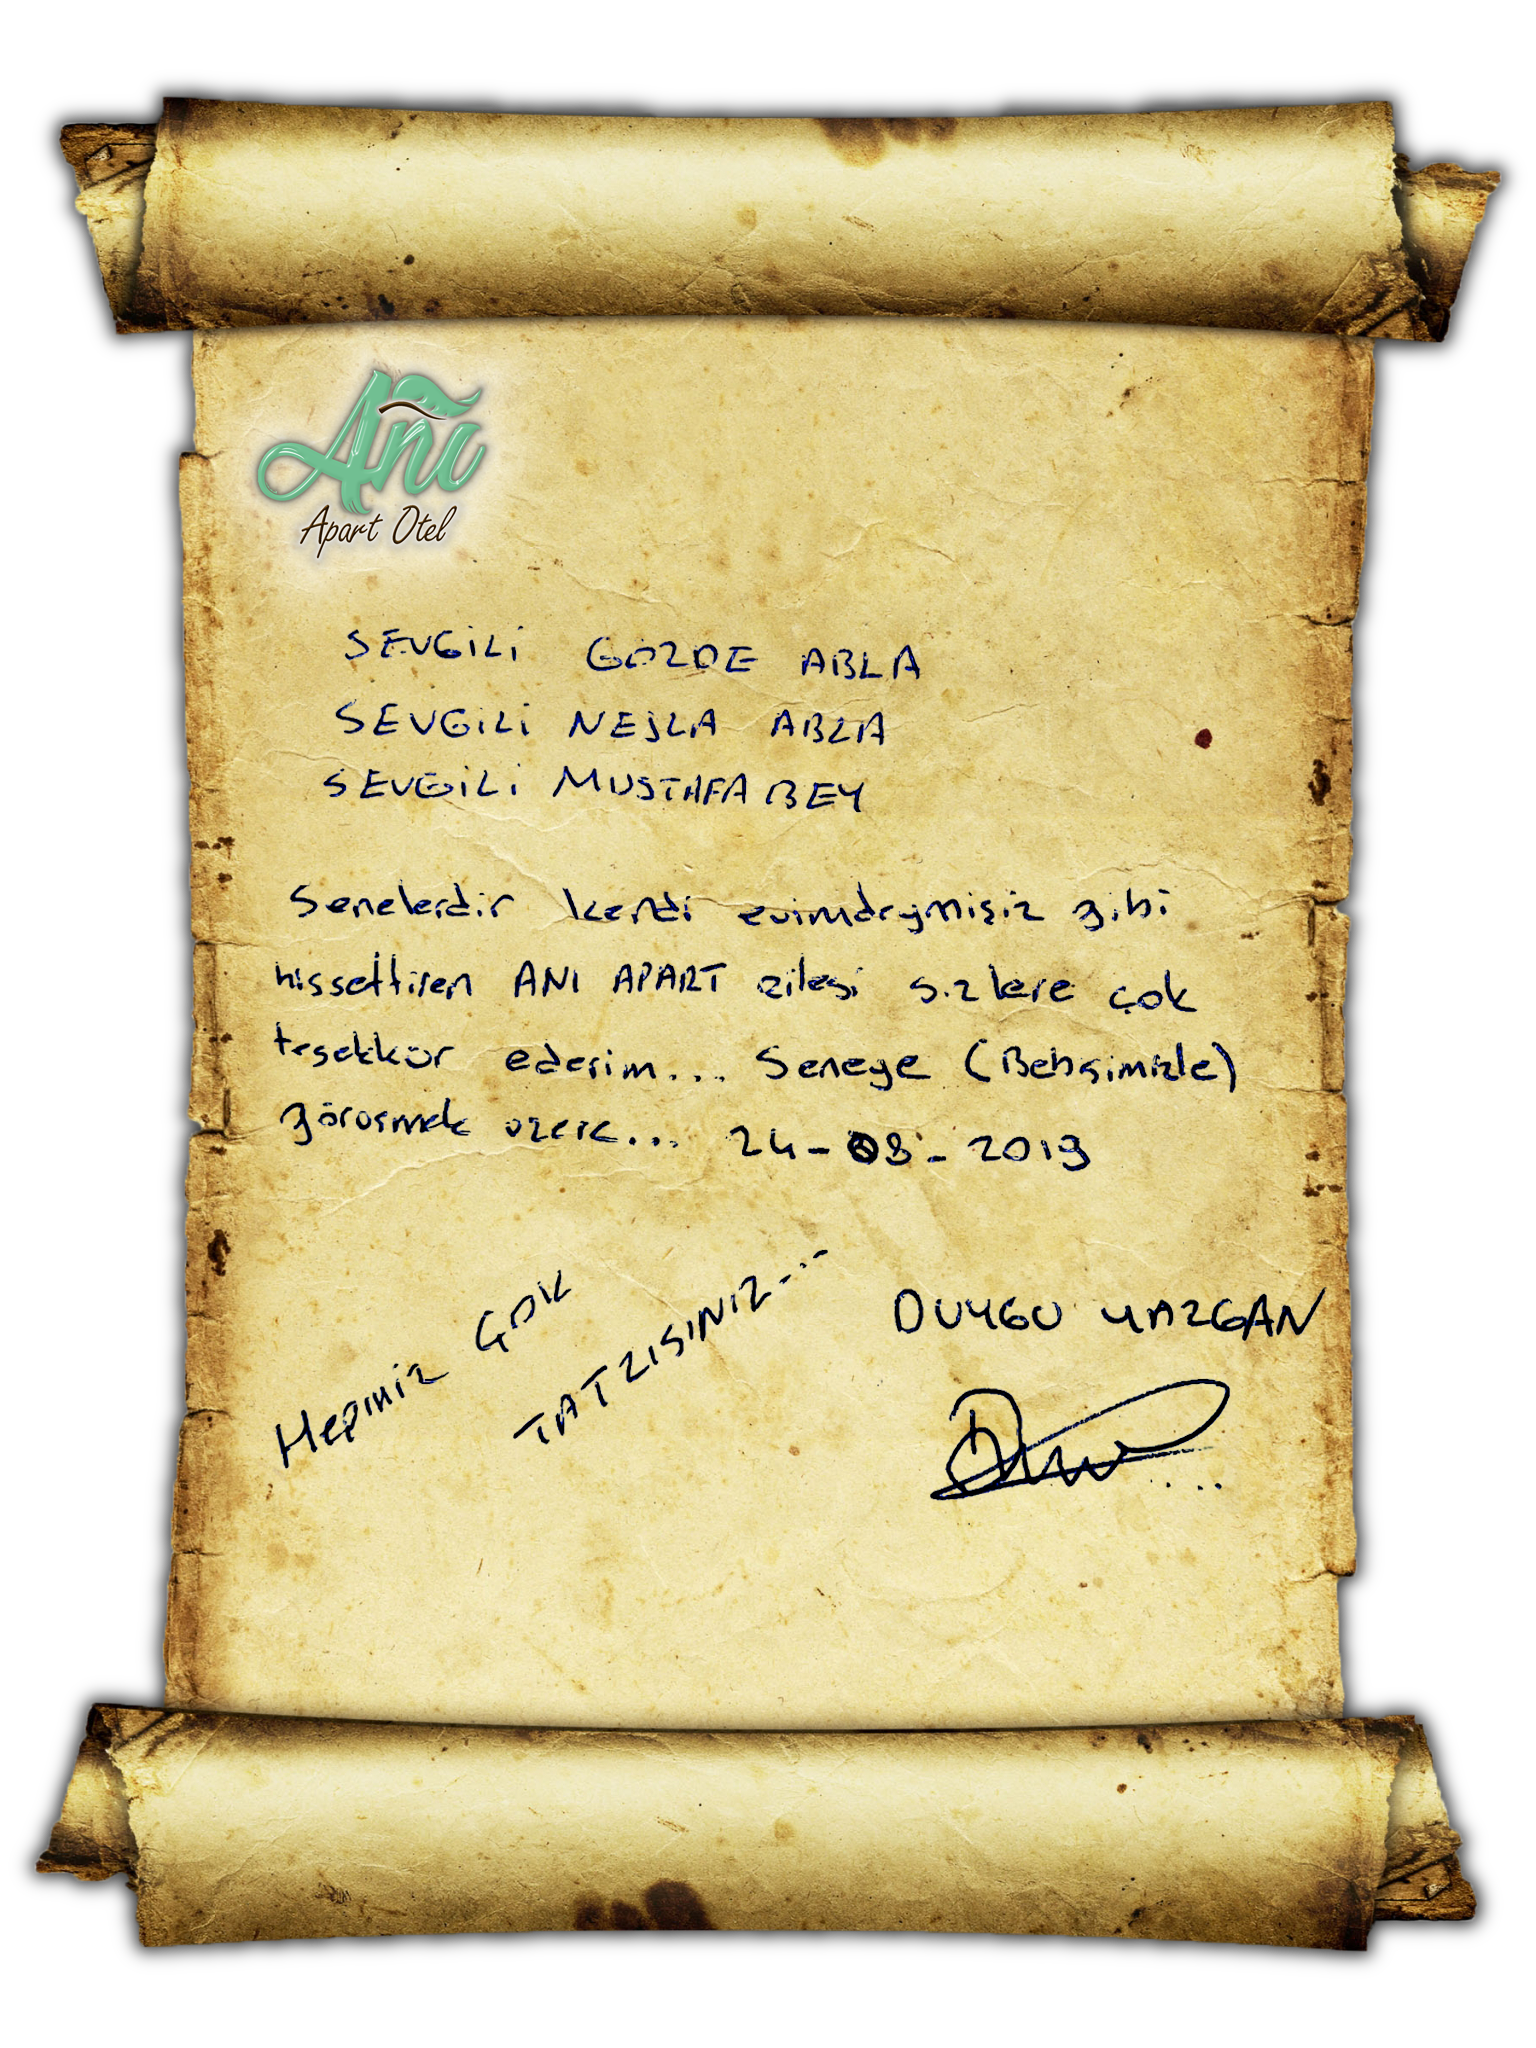 Anı
Apart Otel
SEVGİLİ GÖZDE ABLA
SEVGİLİ NEJLA ABLA
SEVGİLİ MUSTAFA BEY
Senelerdir kendi evimdeymişiz gibi
hissettiren ANI APART ailesi sizlere çok
teşekkür ederim... Seneye (Bebişimizle)
görüşmek üzere... 24-08-2019
Hepiniz ÇOK
TATLISINIZ...
DUYGU YAZGAN